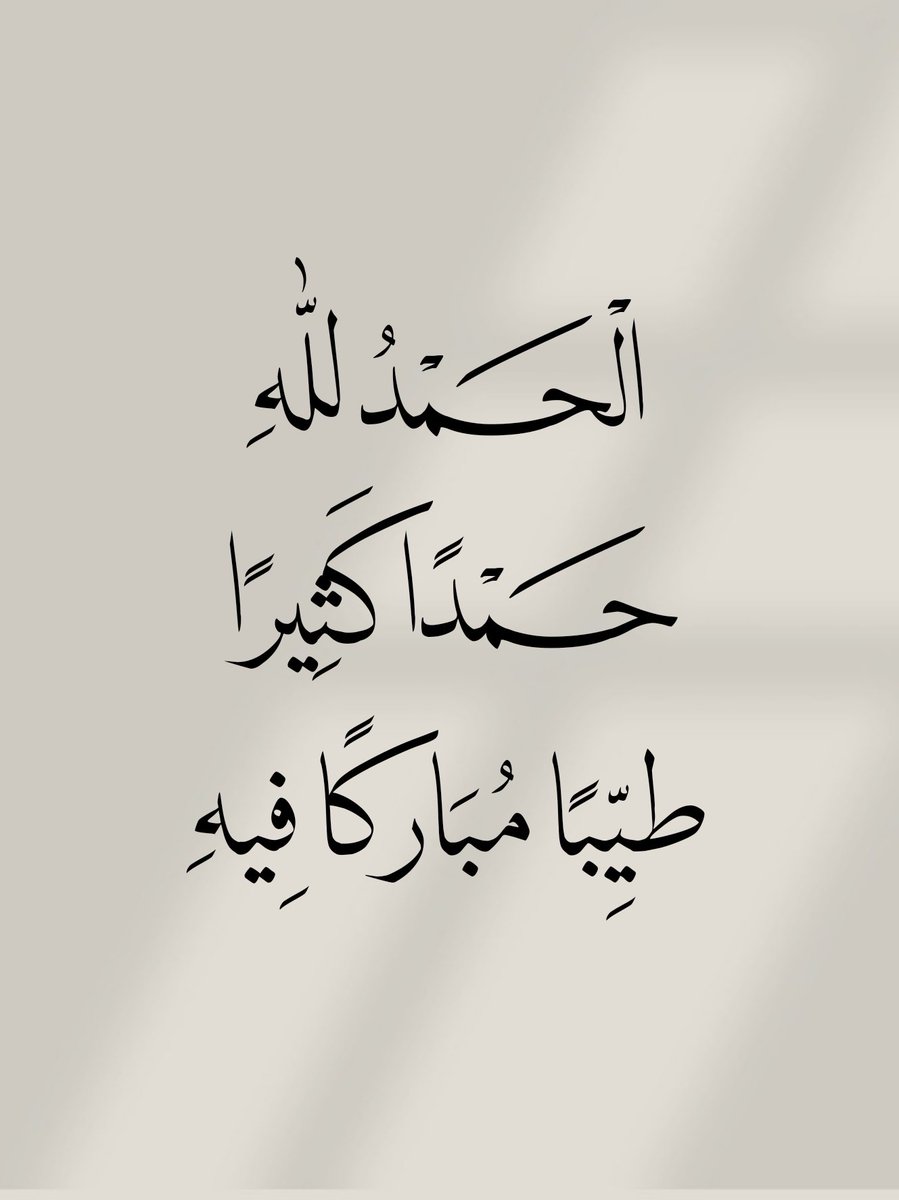 الْحَمْدُ لِلّٰهِ
حَمْدًا كَثِيرًا
طَيِّبًا مُبَارَكًا فِيهِ